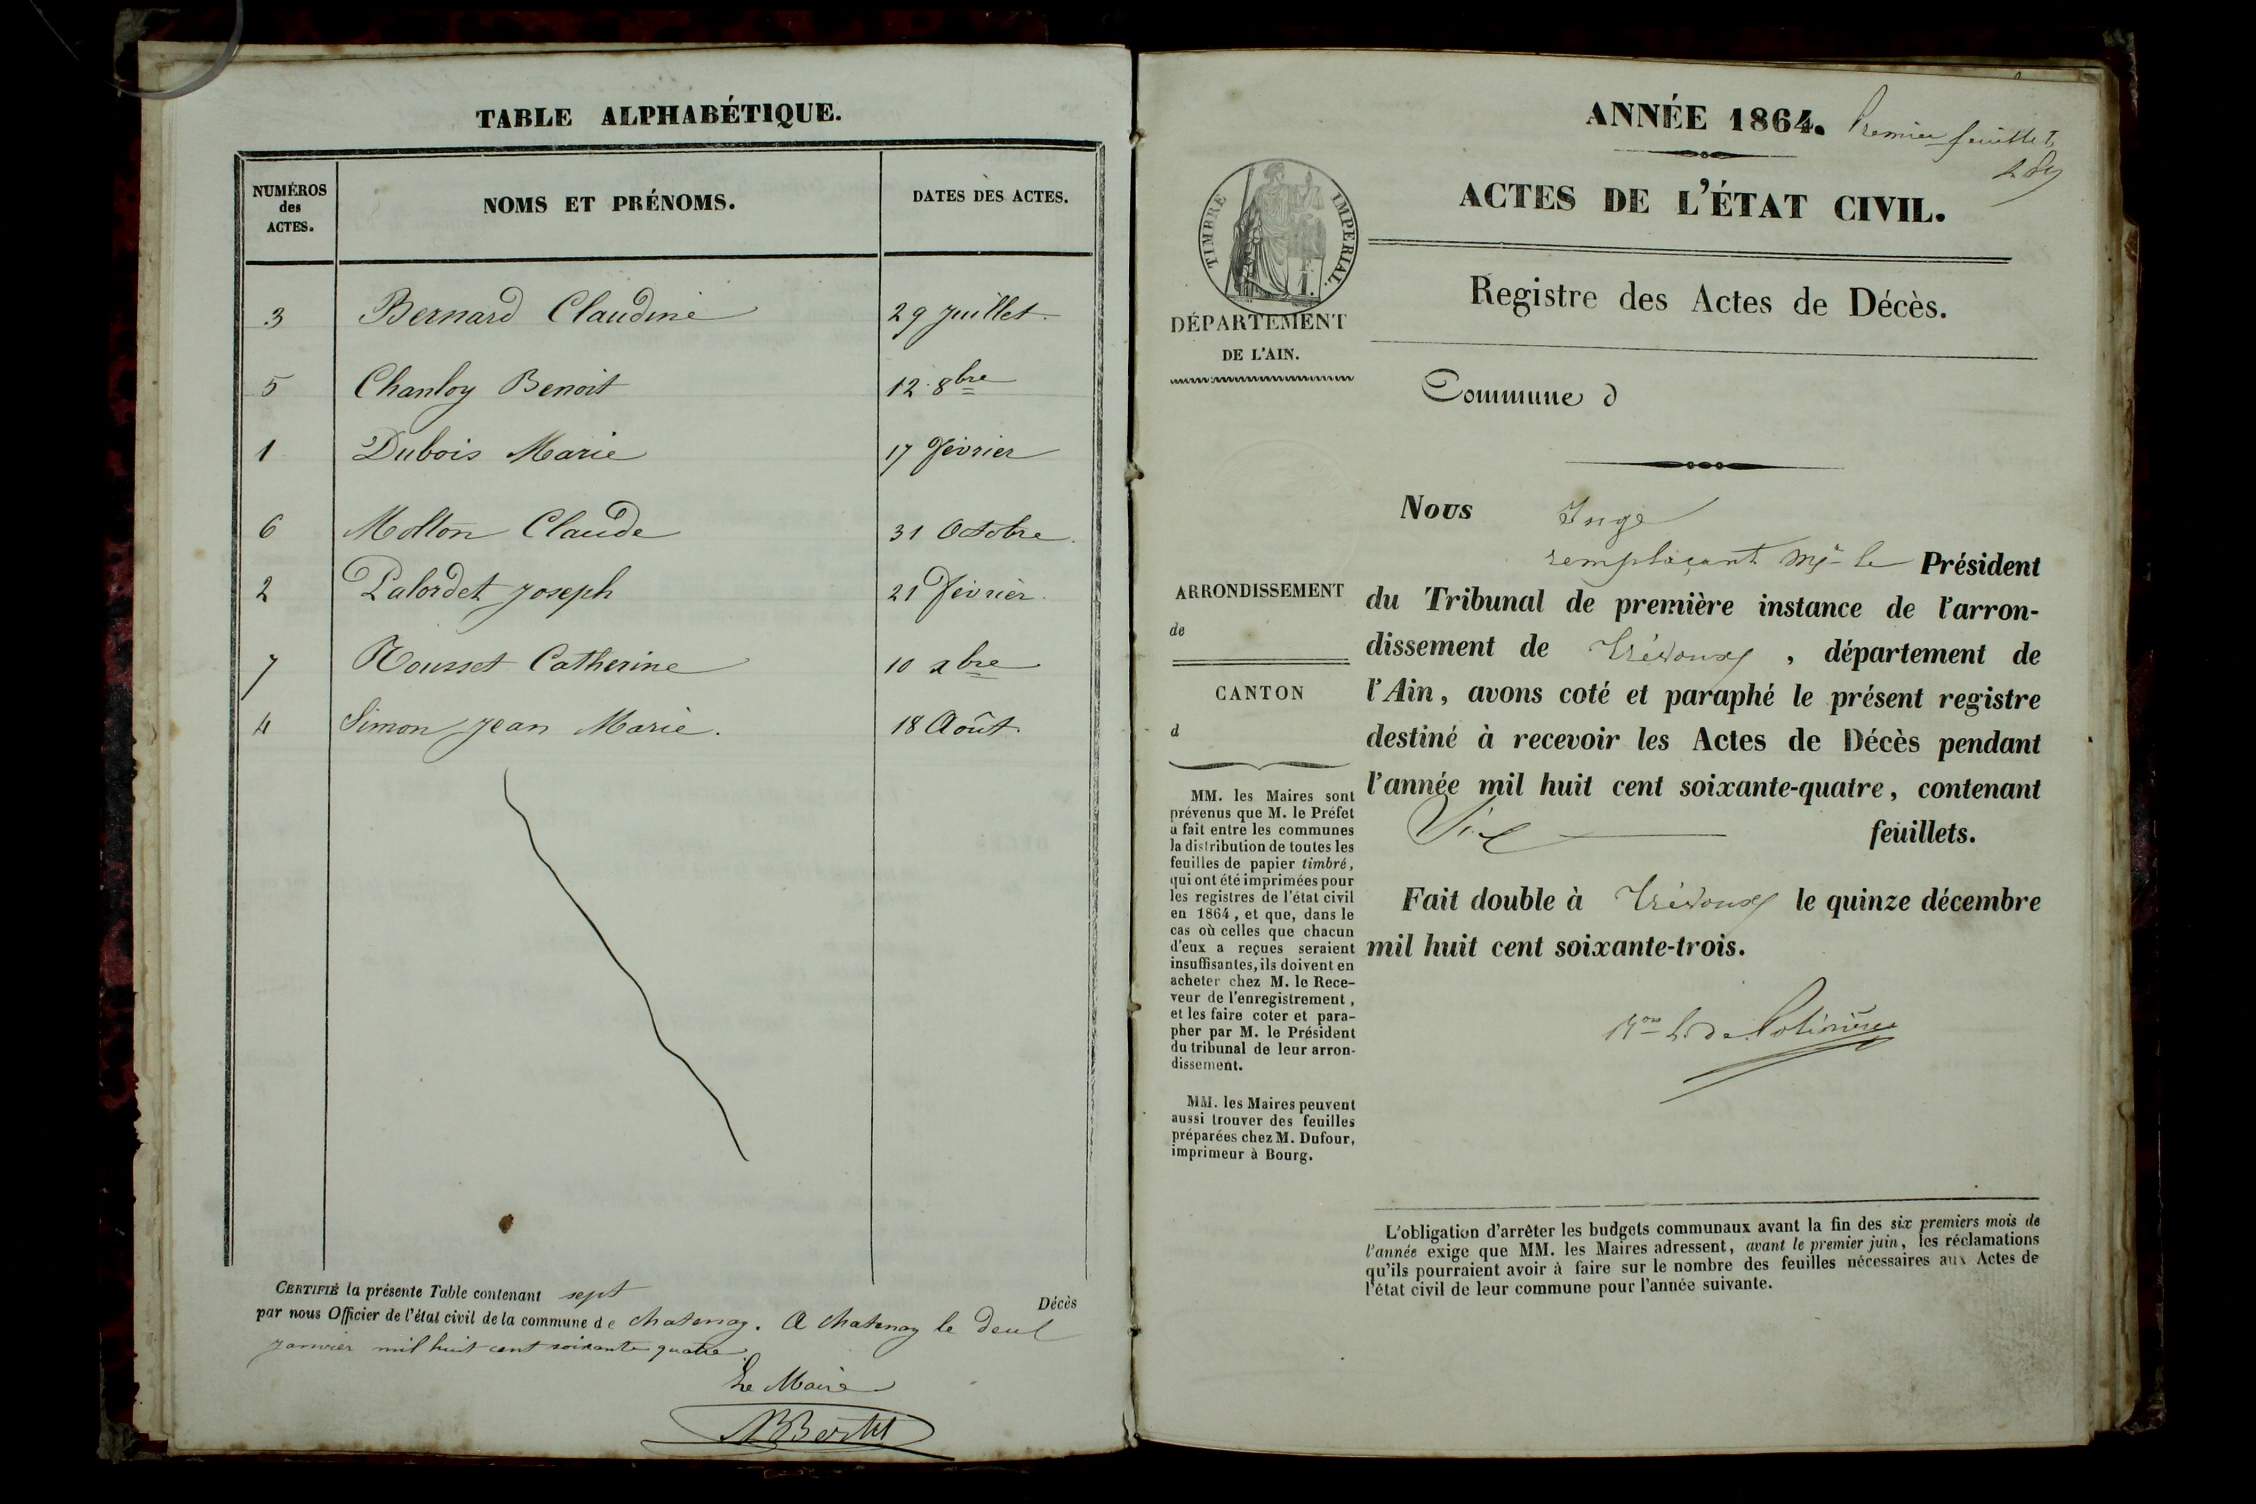 TABLE ALPHABÉTIQUE.
NUMÉROS des ACTES. NOMS ET PRÉNOMS. DATES DES ACTES.
3 Bernard Claudine 29 Juillet.
5 Chanloy Benoit 12 8bre
1 Dubois Marie 17 février
6 Molton Claude 31 Octobre.
2 Palordet Joseph 21 février.
7 Rousset Catherine 10 xbre
4 Simon Jean Marie. 18 Août.
CERTIFIÉ la présente Table contenant sept Décès
par nous Officier de l'état civil de la commune de chatenay. A chatenay le deux
janvier mil huit cent soixante quatre.
Le Maire
Berthet
ANNÉE 1864. Premier feuillet
ACTES DE L'ÉTAT CIVIL.
TIMBRE IMPERIAL.
1 F.
Registre des Actes de Décès.
DÉPARTEMENT
DE L'AIN.
Commune d
ARRONDISSEMENT
de
CANTON
d
MM. les Maires sont
prévenus que M. le Préfet
a fait entre les communes
la distribution de toutes les
feuilles de papier timbré,
qui ont été imprimées pour
les registres de l'état civil
en 1864, et que, dans le
cas où celles que chacun
d'eux a reçues seraient
insuffisantes, ils doivent en
acheter chez M. le Rece-
veur de l'enregistrement,
et les faire coter et para-
pher par M. le Président
du tribunal de leur arron-
dissement.
MM. les Maires peuvent
aussi trouver des feuilles
préparées chez M. Dufour,
imprimeur à Bourg.
Nous Juge
remplaçant Mr le Président
du Tribunal de première instance de l'arron-
dissement de Trévoux, département de
l'Ain, avons coté et paraphé le présent registre
destiné à recevoir les Actes de Décès pendant
l'année mil huit cent soixante-quatre, contenant
Six feuillets.
Fait double à Trévoux le quinze décembre
mil huit cent soixante-trois.
L'obligation d'arrêter les budgets communaux avant la fin des six premiers mois de
l'année exige que MM. les Maires adressent, avant le premier juin, les réclamations
qu'ils pourraient avoir à faire sur le nombre des feuilles nécessaires aux Actes de
l'état civil de leur commune pour l'année suivante.